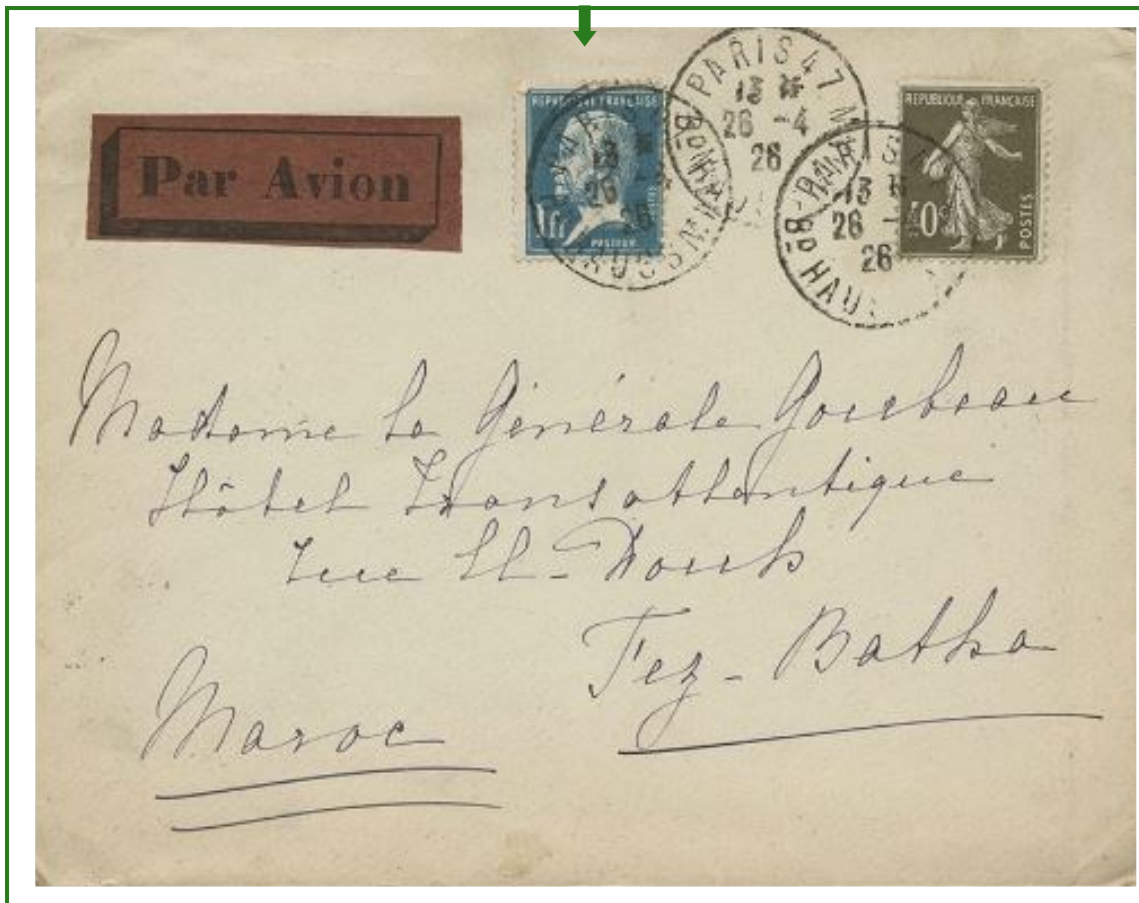 Par Avion
REPUBLIQUE FRANÇAISE
1f
POSTES
PASTEUR
PARIS 47
13 H
26 -4
26
Bd HAUSSMANN
REPUBLIQUE FRANÇAISE
40c
POSTES
13 H
26 -
26
Bd HAU
Madame la Générale Gourbeau
Hôtel Transatlantique
rue El-Douh
Fez-Batha
Maroc